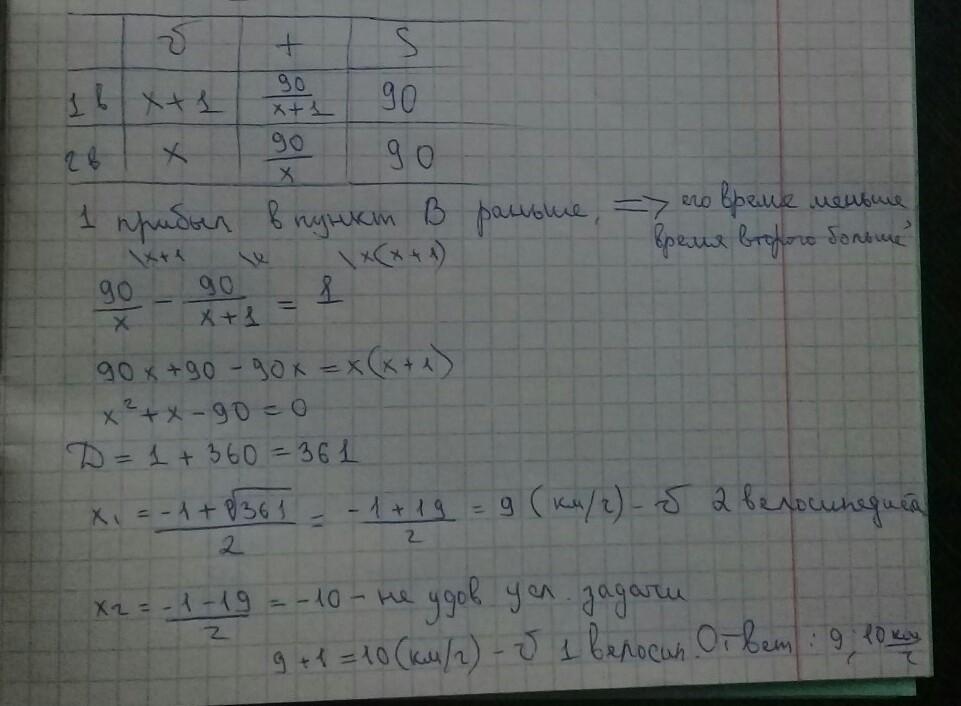 v t S
1 в x+1 90/(x+1) 90
2 в x 90/x 90
1 прибыл в пункт В раньше, => его время меньше,
время второго больше
\x+1 \x \x(x+1)
90/x - 90/(x+1) = 1
90x+90-90x=x(x+1)
x²+x-90=0
D=1+360=361
x₁ = (-1+√361)/2 = (-1+19)/2 = 9 (км/ч) - v 2 велосипедиста
x₂ = (-1-19)/2 = -10 - не удов усл. задачи
9+1=10(км/ч) - v 1 велосип. Ответ: 9; 10 км/ч